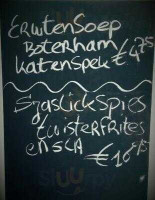 ERWTENSOEP
BOTERHAM
KATENSPEK €4,75
SZASLICKSPIES
TWISTERFRITES
EN SLA
€10